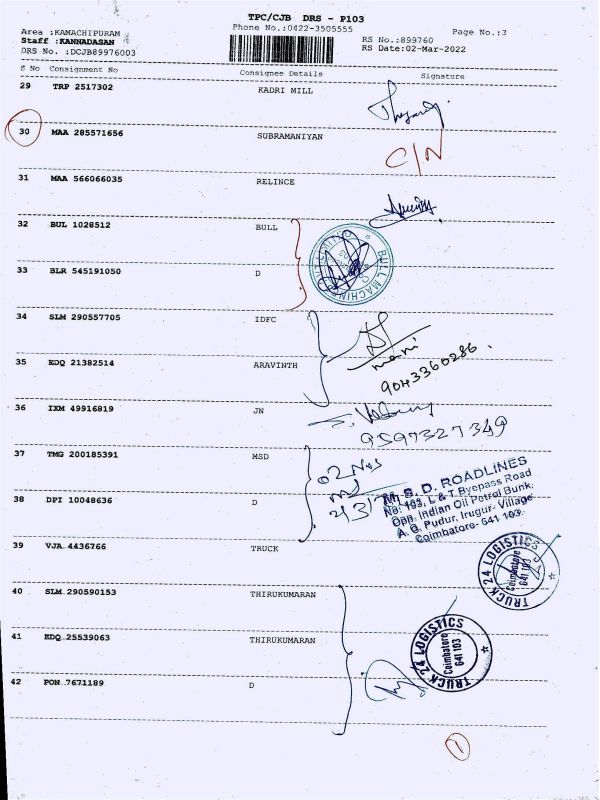 TPC/CJB DRS - P103
Area :KAMACHIPURAM
Phone No.:0422-3505555
Page No.:3
Staff :KANNADASAN
RS No.:899760
DRS No. :DCJB89976003
RS Date:02-Mar-2022
S No Consignment No Consignee Details Signature
29 TRP 2517302 KADRI MILL
30 MAA 285571656 SUBRAMANIYAN
C/N
31 MAA 566066035 RELINCE
32 BUL 1028512 BULL
BULL MACHINE
33 BLR 545191050 D
34 SLM 290557705 IDFC
mani
9043360286
35 EDQ 21382514 ARAVINTH
36 IXM 49916819 JN
9597327349
37 TMG 200185391 MSD
02 Nos
38 DPI 10048636 D
D. ROADLINES
No: 193, L & T Byepass Road
Opp. Indian Oil Petrol Bunk,
A. G. Pudur, Irugur- Village
Coimbatore- 641 103.
39 VJA 4436766 TRUCK
TRUCK 24 LOGISTICS
Coimbatore
641 103
40 SLM 290590153 THIRUKUMARAN
41 EDQ 25539063 THIRUKUMARAN
TRUCK 24 LOGISTICS
Coimbatore
641 103
42 PON 7671189 D
1